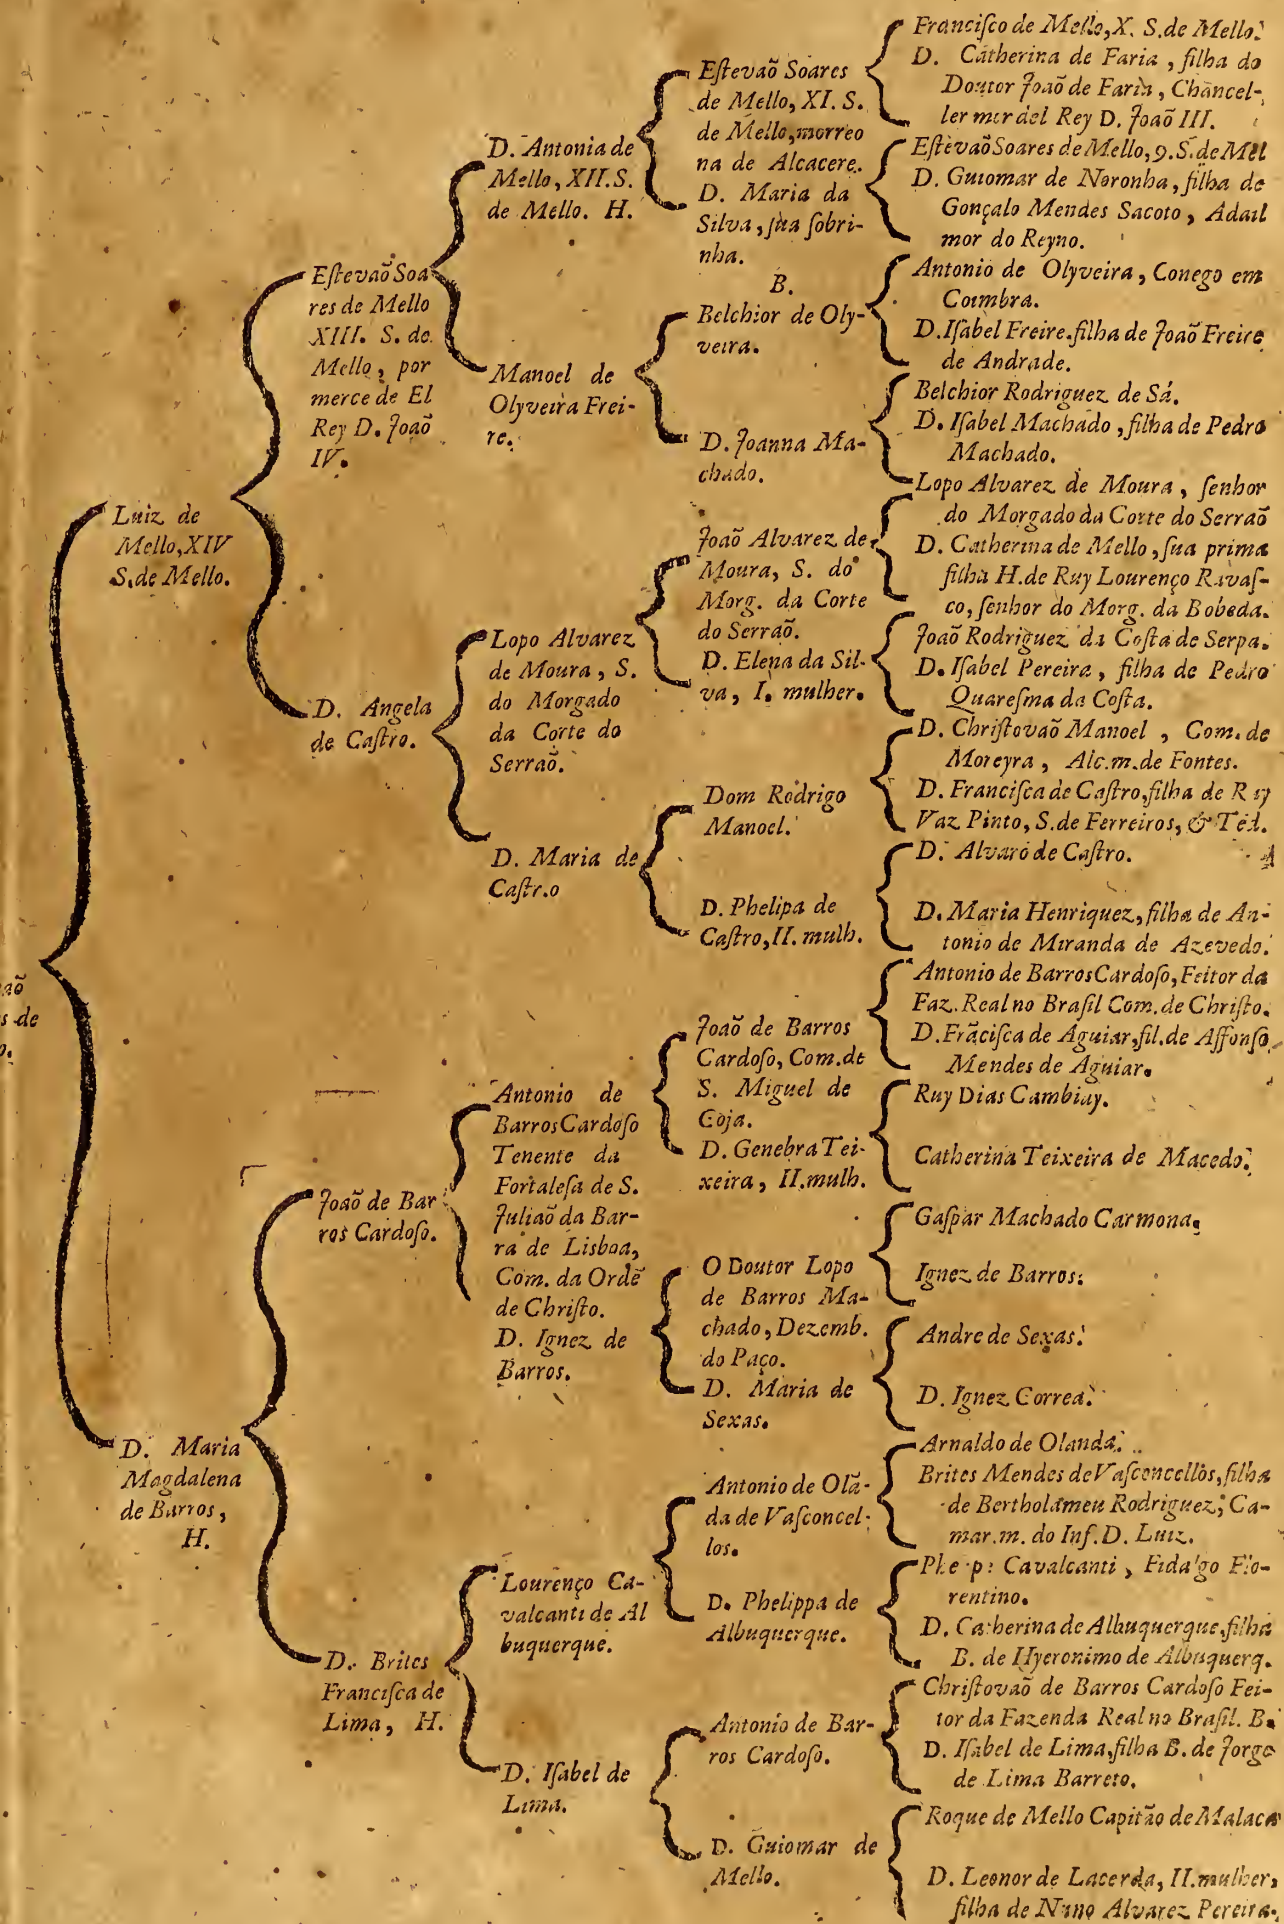 aõ
s de
o.
Luiz de
Mello, XIV
S. de Mello.
D. Maria
Magdalena
de Barros,
H.
Eſtevaõ Soa
res de Mello
XIII. S. de
Mello, por
merce de El
Rey D. Joaõ
IV.
D. Angela
de Caſtro.
Joaõ de Bar
ros Cardoſo.
D. Brites
Franciſca de
Lima, H.
D. Antonia de
Mello, XII. S.
de Mello. H.
Manoel de
Olyveira Frei-
re.
Lopo Alvarez
de Moura, S.
do Morgado
da Corte do
Serraõ.
D. Maria de
Caſtr.o
Antonio de
Barros Cardoſo
Tenente da
Fortaleſa de S.
Juliaõ da Bar-
ra de Lisboa,
Com. da Ordẽ
de Chriſto.
D. Ignez de
Barros.
Lourenço Ca-
valcanti de Al
buquerque.
D. Iſabel de
Lima.
Eſtevaõ Soares
de Mello, XI. S.
de Mello, morreo
na de Alcacere.
D. Maria da
Silva, ſua ſobri-
nha.
B.
Belchior de Oly-
veira.
D. Joanna Ma-
chado.
Joaõ Alvarez de
Moura, S. do
Morg. da Corte
do Serraõ.
D. Elena da Sil-
va, I. mulher.
Dom Rodrigo
Manoel.
D. Phelipa de
Caſtro, II. mulh.
Joaõ de Barros
Cardoſo, Com. de
S. Miguel de
Coja.
D. Genebra Tei-
xeira, II. mulh.
O Doutor Lopo
de Barros Ma-
chado, Dezemb.
do Paço.
D. Maria de
Sexas.
Antonio de Olã-
da de Vaſconcel-
los.
D. Phelippa de
Albuquerque.
Antonio de Bar-
ros Cardoſo.
D. Guiomar de
Mello.
Franciſco de Mello, X. S. de Mello.
D. Catherina de Faria, filha do
Doutor Joaõ de Faria, Chancel-
ler mor del Rey D. Joaõ III.
Eſtevaõ Soares de Mello, 9. S. de Mel
D. Guiomar de Noronha, filha de
Gonçalo Mendes Sacoto, Adail
mor do Reyno.
Antonio de Olyveira, Conego em
Coimbra.
D. Iſabel Freire, filha de Joaõ Freire
de Andrade.
Belchior Rodriguez de Sá.
D. Iſabel Machado, filha de Pedro
Machado.
Lopo Alvarez de Moura, ſenhor
do Morgado da Corte do Serraõ
D. Catherina de Mello, ſua prima
filha H. de Ruy Lourenço Ravaſ-
co, ſenhor do Morg. da Bobeda.
Joaõ Rodriguez da Coſta de Serpa.
D. Iſabel Pereira, filha de Pedro
Quareſma da Coſta.
D. Chriſtovaõ Manoel, Com. de
Moreyra, Alc. m. de Fontes.
D. Franciſca de Caſtro, filha de Ruy
Vaz Pinto, S. de Ferreiros, & Tẽd.
D. Alvaro de Caſtro.
D. Maria Henriquez, filha de An-
tonio de Miranda de Azevedo.
Antonio de Barros Cardoſo, Feitor da
Faz. Real no Braſil Com. de Chriſto.
D. Frãciſca de Aguiar, fil. de Affonſo
Mendes de Aguiar.
Ruy Dias Cambiay.
Catherina Teixeira de Macedo.
Gaſpar Machado Carmona.
Ignez de Barros.
Andre de Sexas.
D. Ignez Correa.
Arnaldo de Olanda.
Brites Mendes de Vaſconcellos, filha
de Bertholameu Rodriguez, Ca-
mar. m. do Inf. D. Luiz.
Phe p: Cavalcanti, Fidalgo Flo-
rentino.
D. Catherina de Albuquerque, filha
B. de Hyeronimo de Albuquerq.
Chriſtovaõ de Barros Cardoſo Fei-
tor da Fazenda Real no Braſil. B.
D. Iſabel de Lima, filha B. de Jorge
de Lima Barreto.
Roque de Mello Capitão de Malaca
D. Leonor de Lacerda, II. mulher,
filha de Nuno Alvarez Pereira.